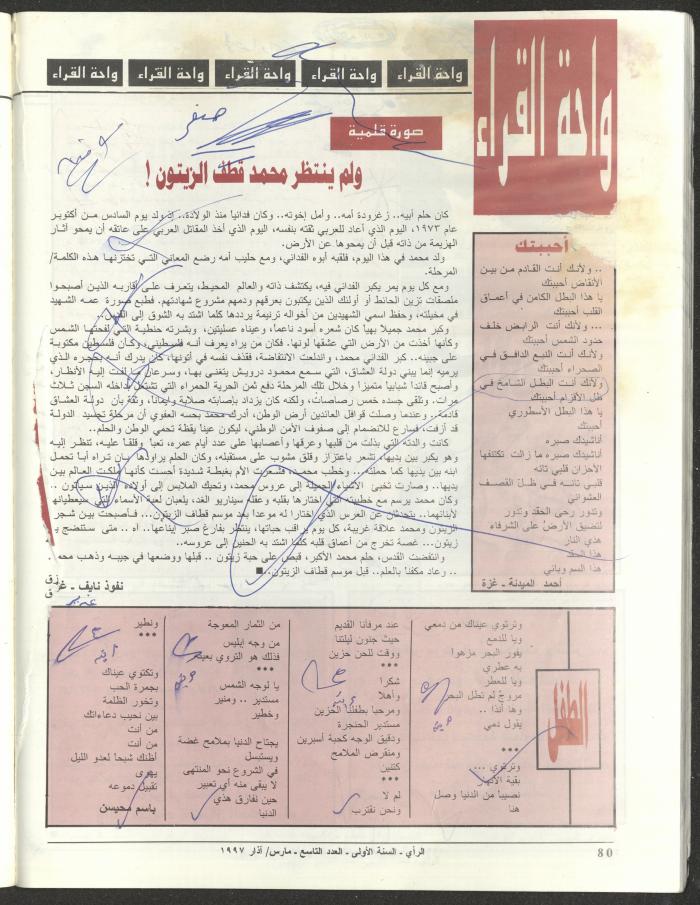 واحة القراء
واحة القراء
واحة القراء
واحة القراء
واحة القراء
واحة القراء
صورة قلمية
ولم ينتظر محمد قطف الزيتون !
كان حلم أبيه.. زغرودة أمه.. وأمل إخوته.. وكان فدائياً منذ الولادة.. إذ ولد يوم السادس من أكتوبر
عام ١٩٧٣، اليوم الذي أعاد للعربي ثقته بنفسه، اليوم الذي أخذ المقاتل العربي على عاتقه أن يمحو آثار
الهزيمة من ذاته قبل أن يمحوها عن الأرض.
ولد محمد في هذا اليوم، فلقبه أبوه الفدائي، ومع حليب أمه رضع المعاني التي تختزنها هذه الكلمة/
المرحلة.
ومع كل يوم يمر يكبر الفدائي فيه، يكتشف ذاته والعالم المحيط، يتعرف على أقاربه الذين أصبحوا
ملصقات تزين الحائط أو أولئك الذين يكتبون بعرقهم ودمهم مشروع شهادتهم. فطبع صورة عمه الشهيد
في مخيلته، وحفظ اسمي الشهيدين من أخواله ترنيمة يرددها كلما اشتد به الشوق إلى
وكبر محمد جميلاً بهياً كان شعره أسود ناعماً، وعيناه عسليتين، وبشرته حنطية التي لفحتها الشمس
وكأنها أخذت من الأرض التي عشقها لونها. فكان من يراه يعرف أنه فلسطيني، وكأن فلسطين مكتوبة
على جبينه.. كبر الفدائي محمد، واندلعت الانتفاضة، فقذف نفسه في أتونها، كان يدرك أنه بحجره الذي
يرميه إنما يبني دولة العشاق، التي سمع محمود درويش يتغنى بها، وسرعان ما لفت إليه الأنظار،
وأصبح قائداً شبابياً متميزاً وخلال تلك المرحلة دفع ثمن الحرية الحمراء التي تشتعل بداخله السجن ثلاث
مرات. وتلقى جسده خمس رصاصات، ولكنه كان يزداد بإصاباته صلابة وإيماناً، وثقة بأن دولة العشاق
قادمة.. وعندما وصلت قوافل العائدين أرض الوطن، أدرك محمد بحسه العفوي أن مرحلة تجسيد الدولة
قد أزفت، فسارع للانضمام إلى صفوف الأمن الوطني، ليكون عيناً يقظة تحمي الوطن والحلم..
كانت والدته التي بذلت من قلبها وعرقها وأعصابها على عدد أيام عمره، تعباً وقلقاً عليه، تنظر إليه
وهو يكبر بين يديها، تشعر باعتزاز وقلق مشوب على مستقبله، وكان الحلم يراودها بأن تراه أباً تحمل
ابنه بين يديها كما حملته... وخطب محمد، فشعرت الأم بغبطة شديدة أحست كأنها ملكت العالم بين
يديها.. وصارت تخبئ الأشياء الجميلة إلى عروس محمد، وتحيك الملابس إلى أولاده الذين سيأتون ..
وكان محمد يرسم مع خطيبته التي اختارها بقلبه وعقله سيناريو الغد، يلعبان لعبة الأسماء التي سيعطيانها
لأبنائهما.. يتحدثان عن العرس الذي اختارا له موعداً بعد موسم قطاف الزيتون... فأصبحت بين شجر
الزيتون ومحمد علاقة غريبة، كل يوم يراقب حباتها، ينتظر بفارغ صبر إيناعها.. آه .. متى ستنضج يا
زيتون... غصة تخرج من أعماق قلبه كلما اشتد به الحنين إلى عروسه..
وانتفضت القدس، حلم محمد الأكبر، قبض على حبة زيتون .. قبلها ووضعها في جيبه وذهب
.. وعاد مكفناً بالعلم.. قبل موسم قطاف الزيتون..
نفوذ نايف - غزة
أحببتك
.. ولأنك أنت القادم من بين
الأنقاض أحببتك
يا هذا البطل الكامن في أعماق
القلب أحببتك
... ولأنك أنت الرابض خلف
حدود الشمس أحببتك
ولأنك أنت النبع الدافق في
الصحراء أحببتك
ولأنك أنت البطل الشامخ في
ظل الأقزام أحببتك
يا هذا البطل الأسطوري
أحببتك
أناشيدك صبره
أناشيدك صبره ما زالت تكتنفها
الأحزان قلبي تائه
قلبي تائه في ظل القصف
العشوائي
وتدور رحى الحقد وتدور
لتضيق الأرض على الشرفاء
هذي النار
هذا الحقد
هذا السم وباني
أحمد الميدنة - غزة
الطفل
وترتوي عيناك من دمعي
ويا للدمع
يفور البحر مزهوا
به عطري
ويا للعطر
مروج لم تطل البحر
وها أنذا ..
يقول دمي
***
وترتوي ...
بقية الأنهار
نصيبا من الدنيا وصل
هنا
عند مرفأنا القديم
حيث جنون ليلتنا
ووقت للحن حزين
***
شكرا
وأهلا
ومرحبا بطفلنا الحزين
مستدير الحنجرة
ودقيق الوجه كحبة أسبرين
ومنقرض الملامح
كتنين
***
لم لا
ونحن نقترب
من الثمار المعوجة
من وجه إبليس
فذلك هو التروي بعينه
***
يا لوجه الشمس
مستدير .. ومنير
وخطير
يجتاح الدنيا بملامح غضة
ويستبسل
في الشروع نحو المنتهى
لا يبقى منه أي تعبير
حين نفارق هذي
الدنيا
ونطير
***
وتكتوي عيناك
بجمرة الحب
وتخور الظلمة
بين نحيب دعاءاتك
من أنت
من أنت
أظنك شبحا لعدو الليل
يهوى
تقبيل دموعه
باسم محيسن
الرأي - السنة الأولى - العدد التاسع - مارس/ آذار ١٩٩٧
80